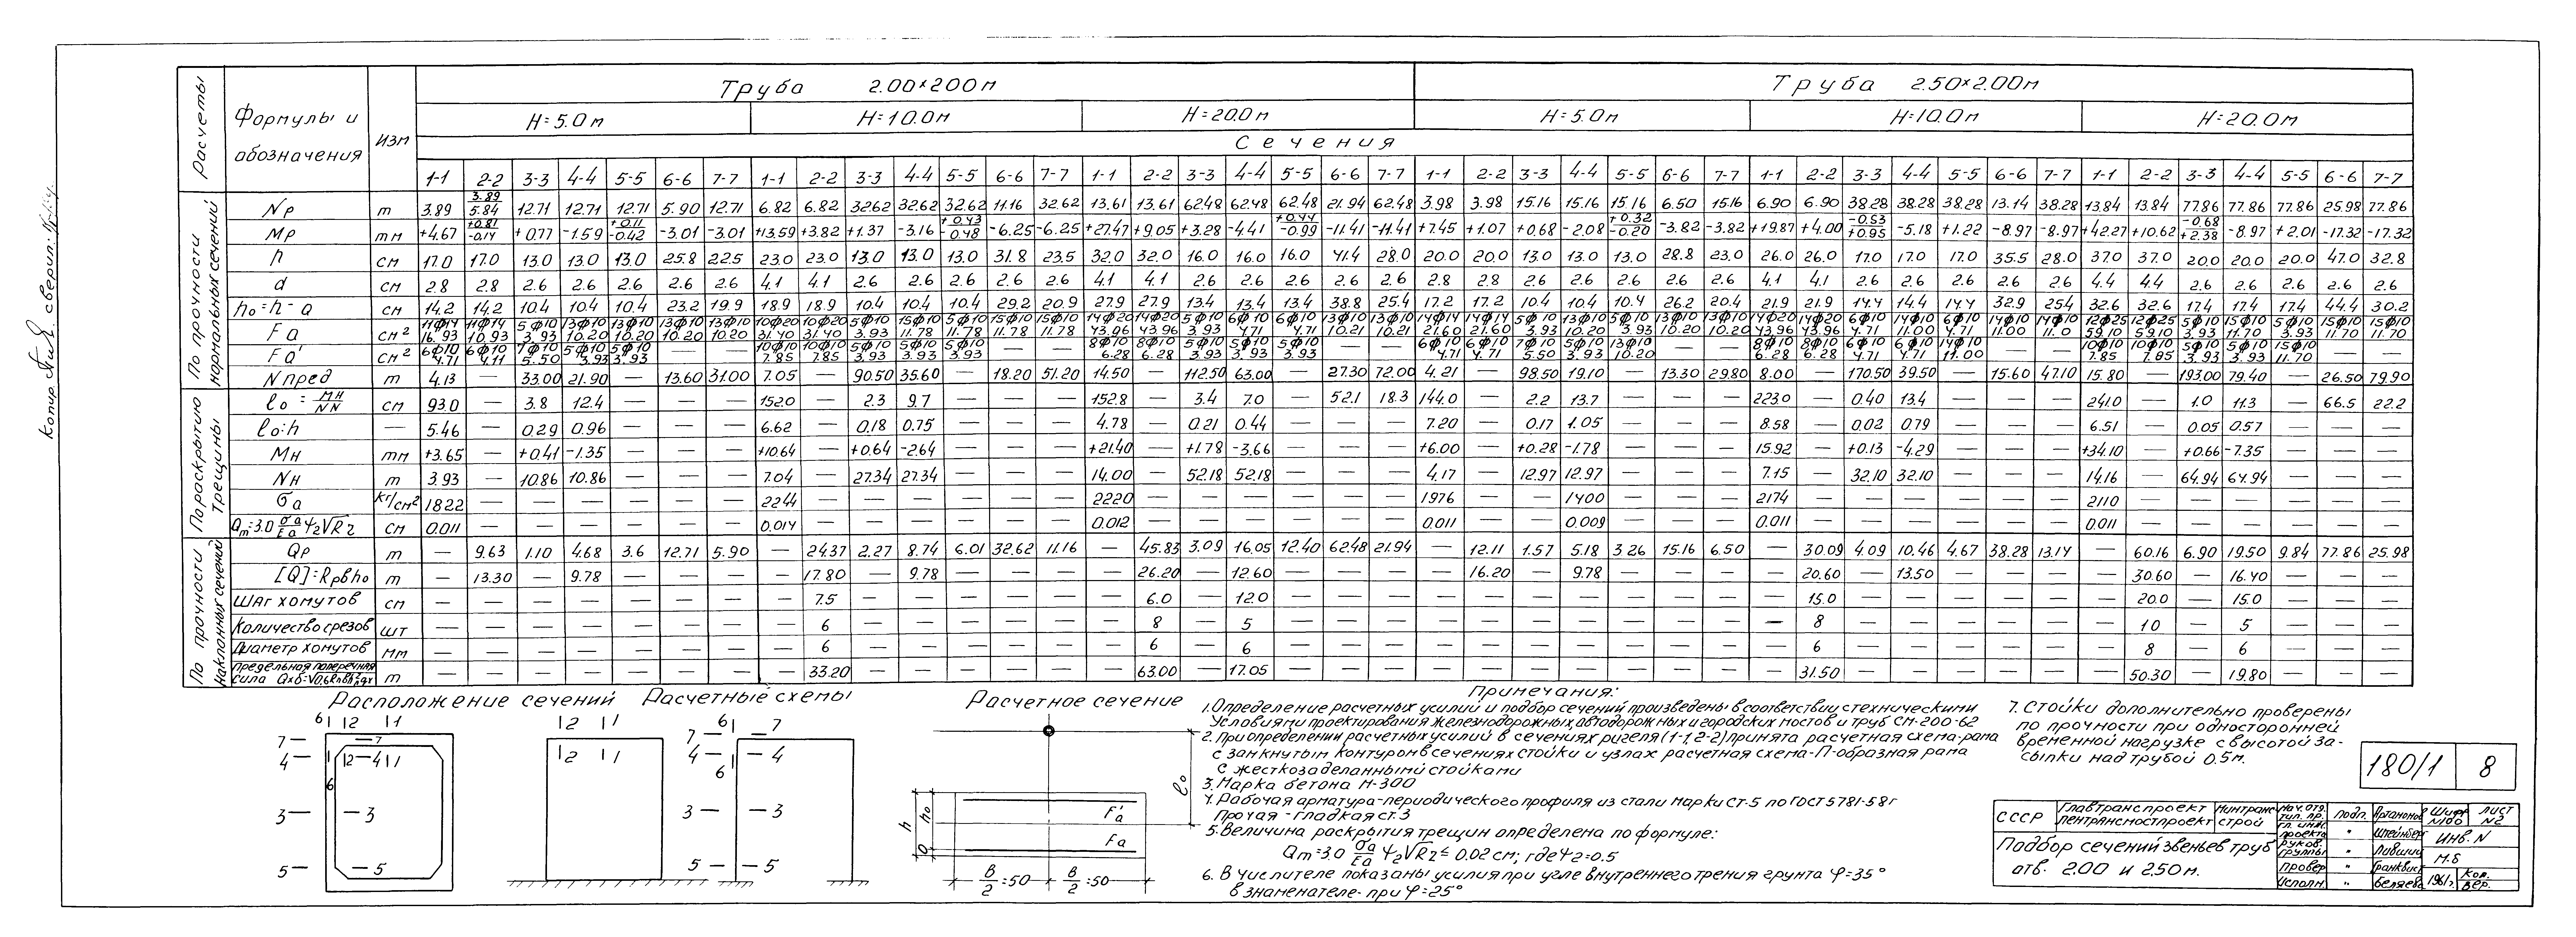 Копир. сверил:
Расчеты
Формулы и обозначения
изм
Труба 2.00×2.00 м
Труба 2.50×2.00 м
H=5.0 м H=10.0 м H=20.0 м H=5.0 м H=10.0 м H=20.0 м
Сечения
1-1 2-2 3-3 4-4 5-5 6-6 7-7 1-1 2-2 3-3 4-4 5-5 6-6 7-7 1-1 2-2 3-3 4-4 5-5 6-6 7-7 1-1 2-2 3-3 4-4 5-5 6-6 7-7 1-1 2-2 3-3 4-4 5-5 6-6 7-7 1-1 2-2 3-3 4-4 5-5 6-6 7-7
По прочности нормальных сечений
Nр т 3.89 3.89/5.84 12.71 12.71 12.71 5.90 12.71 6.82 6.82 32.62 32.62 32.62 11.16 32.62 13.61 13.61 62.48 62.48 62.48 21.94 62.48 3.98 3.98 15.16 15.16 15.16 6.50 15.16 6.90 6.90 38.28 38.28 38.28 13.14 38.28 13.84 13.84 77.86 77.86 77.86 25.98 77.86
Mр тм +4.67 +0.81/-0.14 +0.77 -1.59 +0.11/-0.42 -3.01 -3.01 +13.59 +3.82 +1.37 -3.16 +0.43/-0.48 -6.25 -6.25 +27.47 +9.05 +3.28 -4.41 +0.44/-0.99 -11.41 -11.41 +7.45 +1.07 +0.68 -2.08 +0.32/-0.20 -3.82 -3.82 +19.87 +4.00 -0.53/+0.95 -5.18 +1.22 -8.97 -8.97 +42.27 +10.62 -0.68/+2.38 -8.97 +2.01 -17.32 -17.32
h см 17.0 17.0 13.0 13.0 13.0 25.8 22.5 23.0 23.0 13.0 13.0 13.0 31.8 23.5 32.0 32.0 16.0 16.0 16.0 41.4 28.0 20.0 20.0 13.0 13.0 13.0 28.8 23.0 26.0 26.0 17.0 17.0 17.0 35.5 28.0 37.0 37.0 20.0 20.0 20.0 47.0 32.8
a см 2.8 2.8 2.6 2.6 2.6 2.6 2.6 4.1 4.1 2.6 2.6 2.6 2.6 2.6 4.1 4.1 2.6 2.6 2.6 2.6 2.6 2.8 2.8 2.6 2.6 2.6 2.6 2.6 4.1 4.1 2.6 2.6 2.6 2.6 2.6 4.4 4.4 2.6 2.6 2.6 2.6 2.6
h₀=h-a см 14.2 14.2 10.4 10.4 10.4 23.2 19.9 18.9 18.9 10.4 10.4 10.4 29.2 20.9 27.9 27.9 13.4 13.4 13.4 38.8 25.4 17.2 17.2 10.4 10.4 10.4 26.2 20.4 21.9 21.9 14.4 14.4 14.4 32.9 25.4 32.6 32.6 17.4 17.4 17.4 44.4 30.2
11ф14 11ф14 5ф10 13ф10 13ф10 13ф10 13ф10 10ф20 10ф20 5ф10 15ф10 15ф10 15ф10 15ф10 14ф20 14ф20 5ф10 6ф10 6ф10 13ф10 13ф10 14ф14 14ф14 5ф10 13ф10 5ф10 13ф10 13ф10 14ф20 14ф20 6ф10 14ф10 6ф10 14ф10 14ф10 12ф25 12ф25 5ф10 15ф10 5ф10 15ф10 15ф10
Fа см² 16.93 10.93 3.93 10.20 10.20 10.20 10.20 31.40 31.40 3.93 11.78 11.78 11.78 11.78 43.96 43.96 3.93 4.71 4.71 10.21 10.21 21.60 21.60 3.93 10.20 3.93 10.20 10.20 43.96 43.96 4.71 11.00 4.71 11.00 11.0 59.10 59.10 3.93 11.70 3.93 11.70 11.70
6ф10 6ф10 7ф10 5ф10 5ф10 — — 10ф10 10ф10 5ф10 5ф10 5ф10 — — 8ф10 8ф10 5ф10 5ф10 5ф10 — — 6ф10 6ф10 7ф10 5ф10 13ф10 — — 8ф10 8ф10 6ф10 6ф10 14ф10 — — 10ф10 10ф10 5ф10 5ф10 15ф10 — —
Fа' см² 4.71 4.71 5.50 3.93 3.93 7.85 7.85 3.93 3.93 3.93 6.28 6.28 3.93 3.93 3.93 4.71 4.71 5.50 3.93 10.20 6.28 6.28 4.71 4.71 11.00 7.85 7.85 3.93 3.93 11.70
Nпред т 4.13 — 33.00 21.90 — 13.60 31.00 7.05 — 90.50 35.60 — 18.20 51.20 14.50 — 112.50 63.00 — 27.30 72.00 4.21 — 98.50 19.10 — 13.30 29.80 8.00 — 170.50 39.50 — 15.60 47.10 15.80 — 193.00 79.40 — 26.50 79.90
По раскрытию трещины
ℓ₀=Mн/Nн см 93.0 — 3.8 12.4 — — — 152.0 2.3 9.7 152.8 — 3.4 7.0 — 52.1 18.3 144.0 — 2.2 13.7 — — — 223.0 — 0.40 13.4 — — — 241.0 — 1.0 11.3 — 66.5 22.2
ℓ₀:h — 5.46 — 0.29 0.96 — — — 6.62 — 0.18 0.75 — — — 4.78 — 0.21 0.44 — — — 7.20 — 0.17 1.05 — — — 8.58 — 0.02 0.79 — — — 6.51 — 0.05 0.57 — — —
Mн тм +3.65 — +0.41 -1.35 — — — +10.64 — +0.64 -2.64 — — — +21.40 — +1.78 -3.66 — — — +6.00 — +0.28 -1.78 — — — 15.92 — +0.13 -4.29 — — — +34.10 — +0.66 -7.35 — — —
Nн т 3.93 — 10.86 10.86 — — — 7.04 — 27.34 27.34 — — — 14.00 — 52.18 52.18 — — — 4.17 — 12.97 12.97 — — — 7.15 — 32.10 32.10 — — — 14.16 — 64.94 64.94 — — —
σа кг/см² 1822 — — — — — — 2244 — — — — — — 2220 — — — — — — 1976 — — 1400 — — — 2174 — — — — — — 2110 — — — — — —
aт=3.0 σа/Eа ψ₂√Rz см 0.011 — — — — — — 0.014 — — — — — — 0.012 — — — — — — 0.011 — — 0.009 — — — 0.011 — — — — — — 0.011 — — — — — —
По прочности наклонных сечений
Qр т — 9.63 1.10 4.68 3.6 12.71 5.90 — 24.37 2.27 8.74 6.01 32.62 11.16 — 45.83 3.09 16.05 12.40 62.48 21.94 — 12.11 1.57 5.18 3.26 15.16 6.50 — 30.09 4.09 10.46 4.67 38.28 13.14 — 60.16 6.90 19.50 9.84 77.86 25.98
[Q]=Rрвh₀ т — 13.30 — 9.78 — — — — 17.80 — 9.78 — — — — 26.20 — 12.60 — — — — 16.20 — 9.78 — — — — 20.60 — 13.50 — — — — 30.60 — 16.40 — — —
Шаг хомутов см — — — — — — — — 7.5 — — — — — — 6.0 — 12.0 — — — — — — — — — — — 15.0 — — — — — — 20.0 — 15.0 — — —
Количество срезов шт — — — — — — — — 6 — — — — — — 8 — 5 — — — — — — — — — — — 8 — — — — — — 10 — 5 — — —
Диаметр хомутов мм — — — — — — — — 6 — — — — — — 6 — 6 — — — — — — — — — — — 6 — — — — — — 8 — 6 — — —
Предельная поперечная
сила Qхб=√0,6Rиbh₀²qх т — — — — — — — — 33.20 — — — — — — 63.00 — 17.05 — — — — — — — — — — — 31.50 — — — — — — 50.30 — 19.80 — — —
Расположение сечений
6 2 1
7 7
4 2 4 1
6
3 3
5 5
Расчетные схемы
2 1
2 1
6 7
7
4 4
6
3 3
5 5
Расчетное сечение
ℓ₀
h h₀ a
Fа'
Fа
B/2=50 B/2=50
Примечания:
1. Определение расчетных усилий и подбор сечений произведены в соответствии с техническими
Условиями проектирования железнодорожных, автодорожных и городских мостов и труб СН-200-62
2. При определении расчетных усилий в сечениях ригеля (1-1, 2-2) принята расчетная схема-рама
с замкнутым контуром в сечениях стойки и узлах расчетная схема-П-образная рама
с жесткозаделанными стойками
3. Марка бетона М-300
4. Рабочая арматура-периодического профиля из стали марки Ст-5 по ГОСТ 5781-58г
прочая - гладкая ст.3
5. Величина раскрытия трещин определена по формуле:
aт=3.0 σа/Eа ψ₂√Rz ≤ 0.02 см; где ψ₂=0.5
6. В числителе показаны усилия при угле внутреннего трения грунта φ=35°
в знаменателе - при φ=25°
7. Стойки дополнительно проверены
по прочности при односторонней
временной нагрузке с высотой за-
сыпки над трубой 0.5м.
180/1 8
СССР
Главтранспроект
Лентрансмостпроект
Минтранс
строй
Подбор сечений звеньев труб
отв. 2.00 и 2.50 м.
Нач. отд. тип. пр. подп. Артамонов
Гл. инж. проекта " Штейнбер
Руков. группы " Лившиц
Провер " Гранквис
Исполн. " Беляева
Шифр N180
Лист N2
Инв. N
М.б
1961г. Кор. вер.